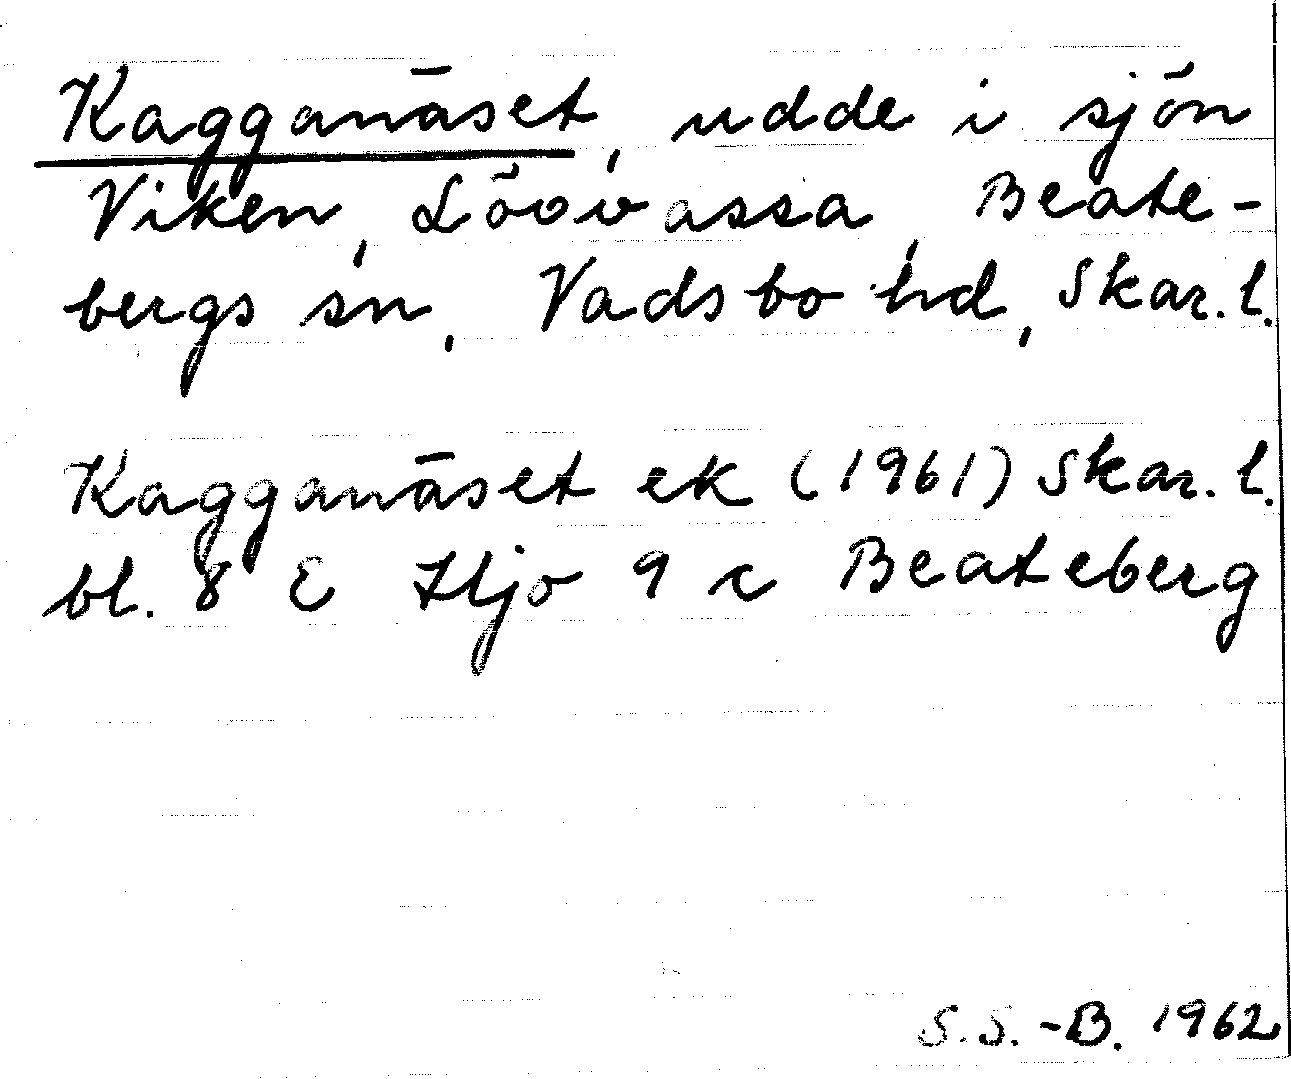 Kagganäset, udde i sjön
Viken, Lövvassa, Beate-
bergs sn, Vadsbo hd, Skar. l.
Kagganäset ek (1961) Skar. l.
bl. 8 E Hjo 9 c Beateberg
S.S.-B. 1962